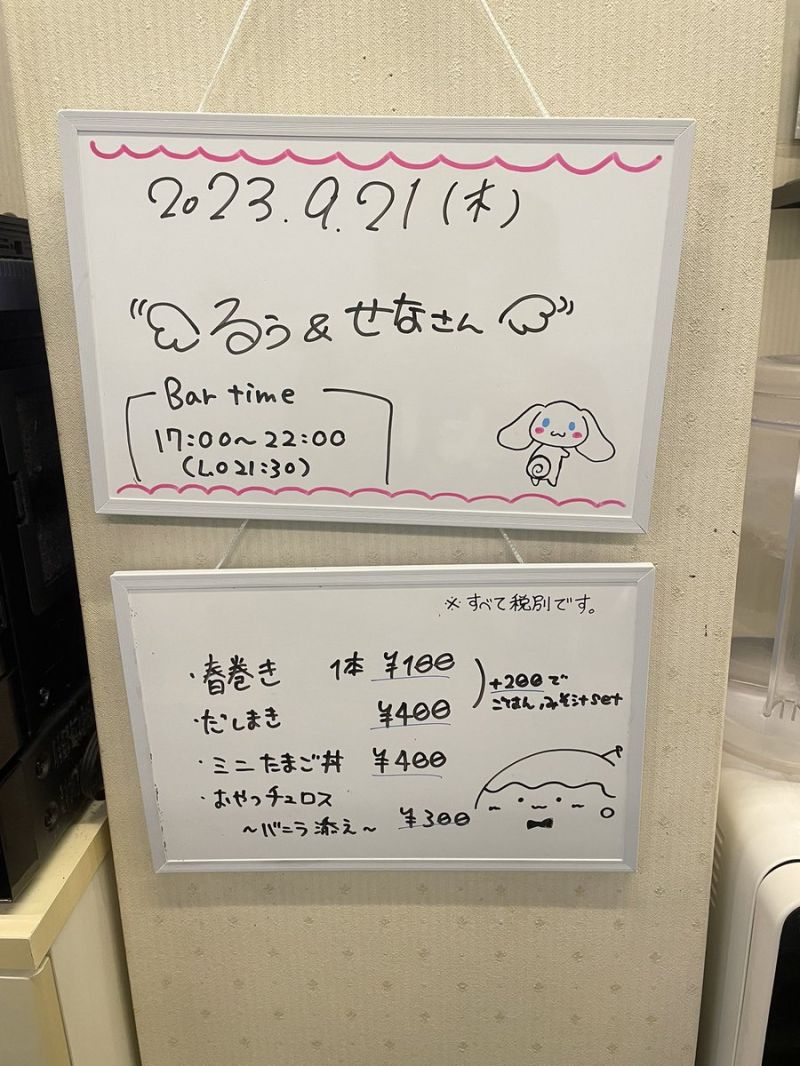 2023.9.21(木)
るう&せなさん
Bar time
17:00～22:00
(L.O 21:30)
※すべて税別です。
・春巻き 1本 ¥100
・だしまき ¥400
+200で
ごはん、みそ汁set
・ミニたまご丼 ¥400
・おやつチュロス
～バニラ添え～ ¥300